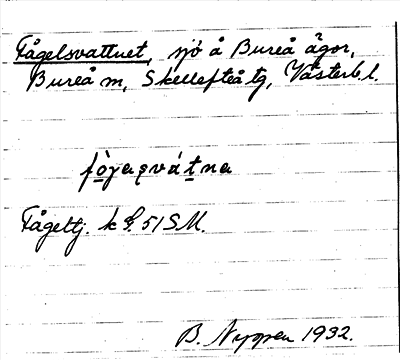 Fågelsvattnet, sjö å Bureå ägor,
Bureå sn, Skellefteå tg, Västerb. l.
Fågeltj. k 51 SM.
B. Nygren 1932.